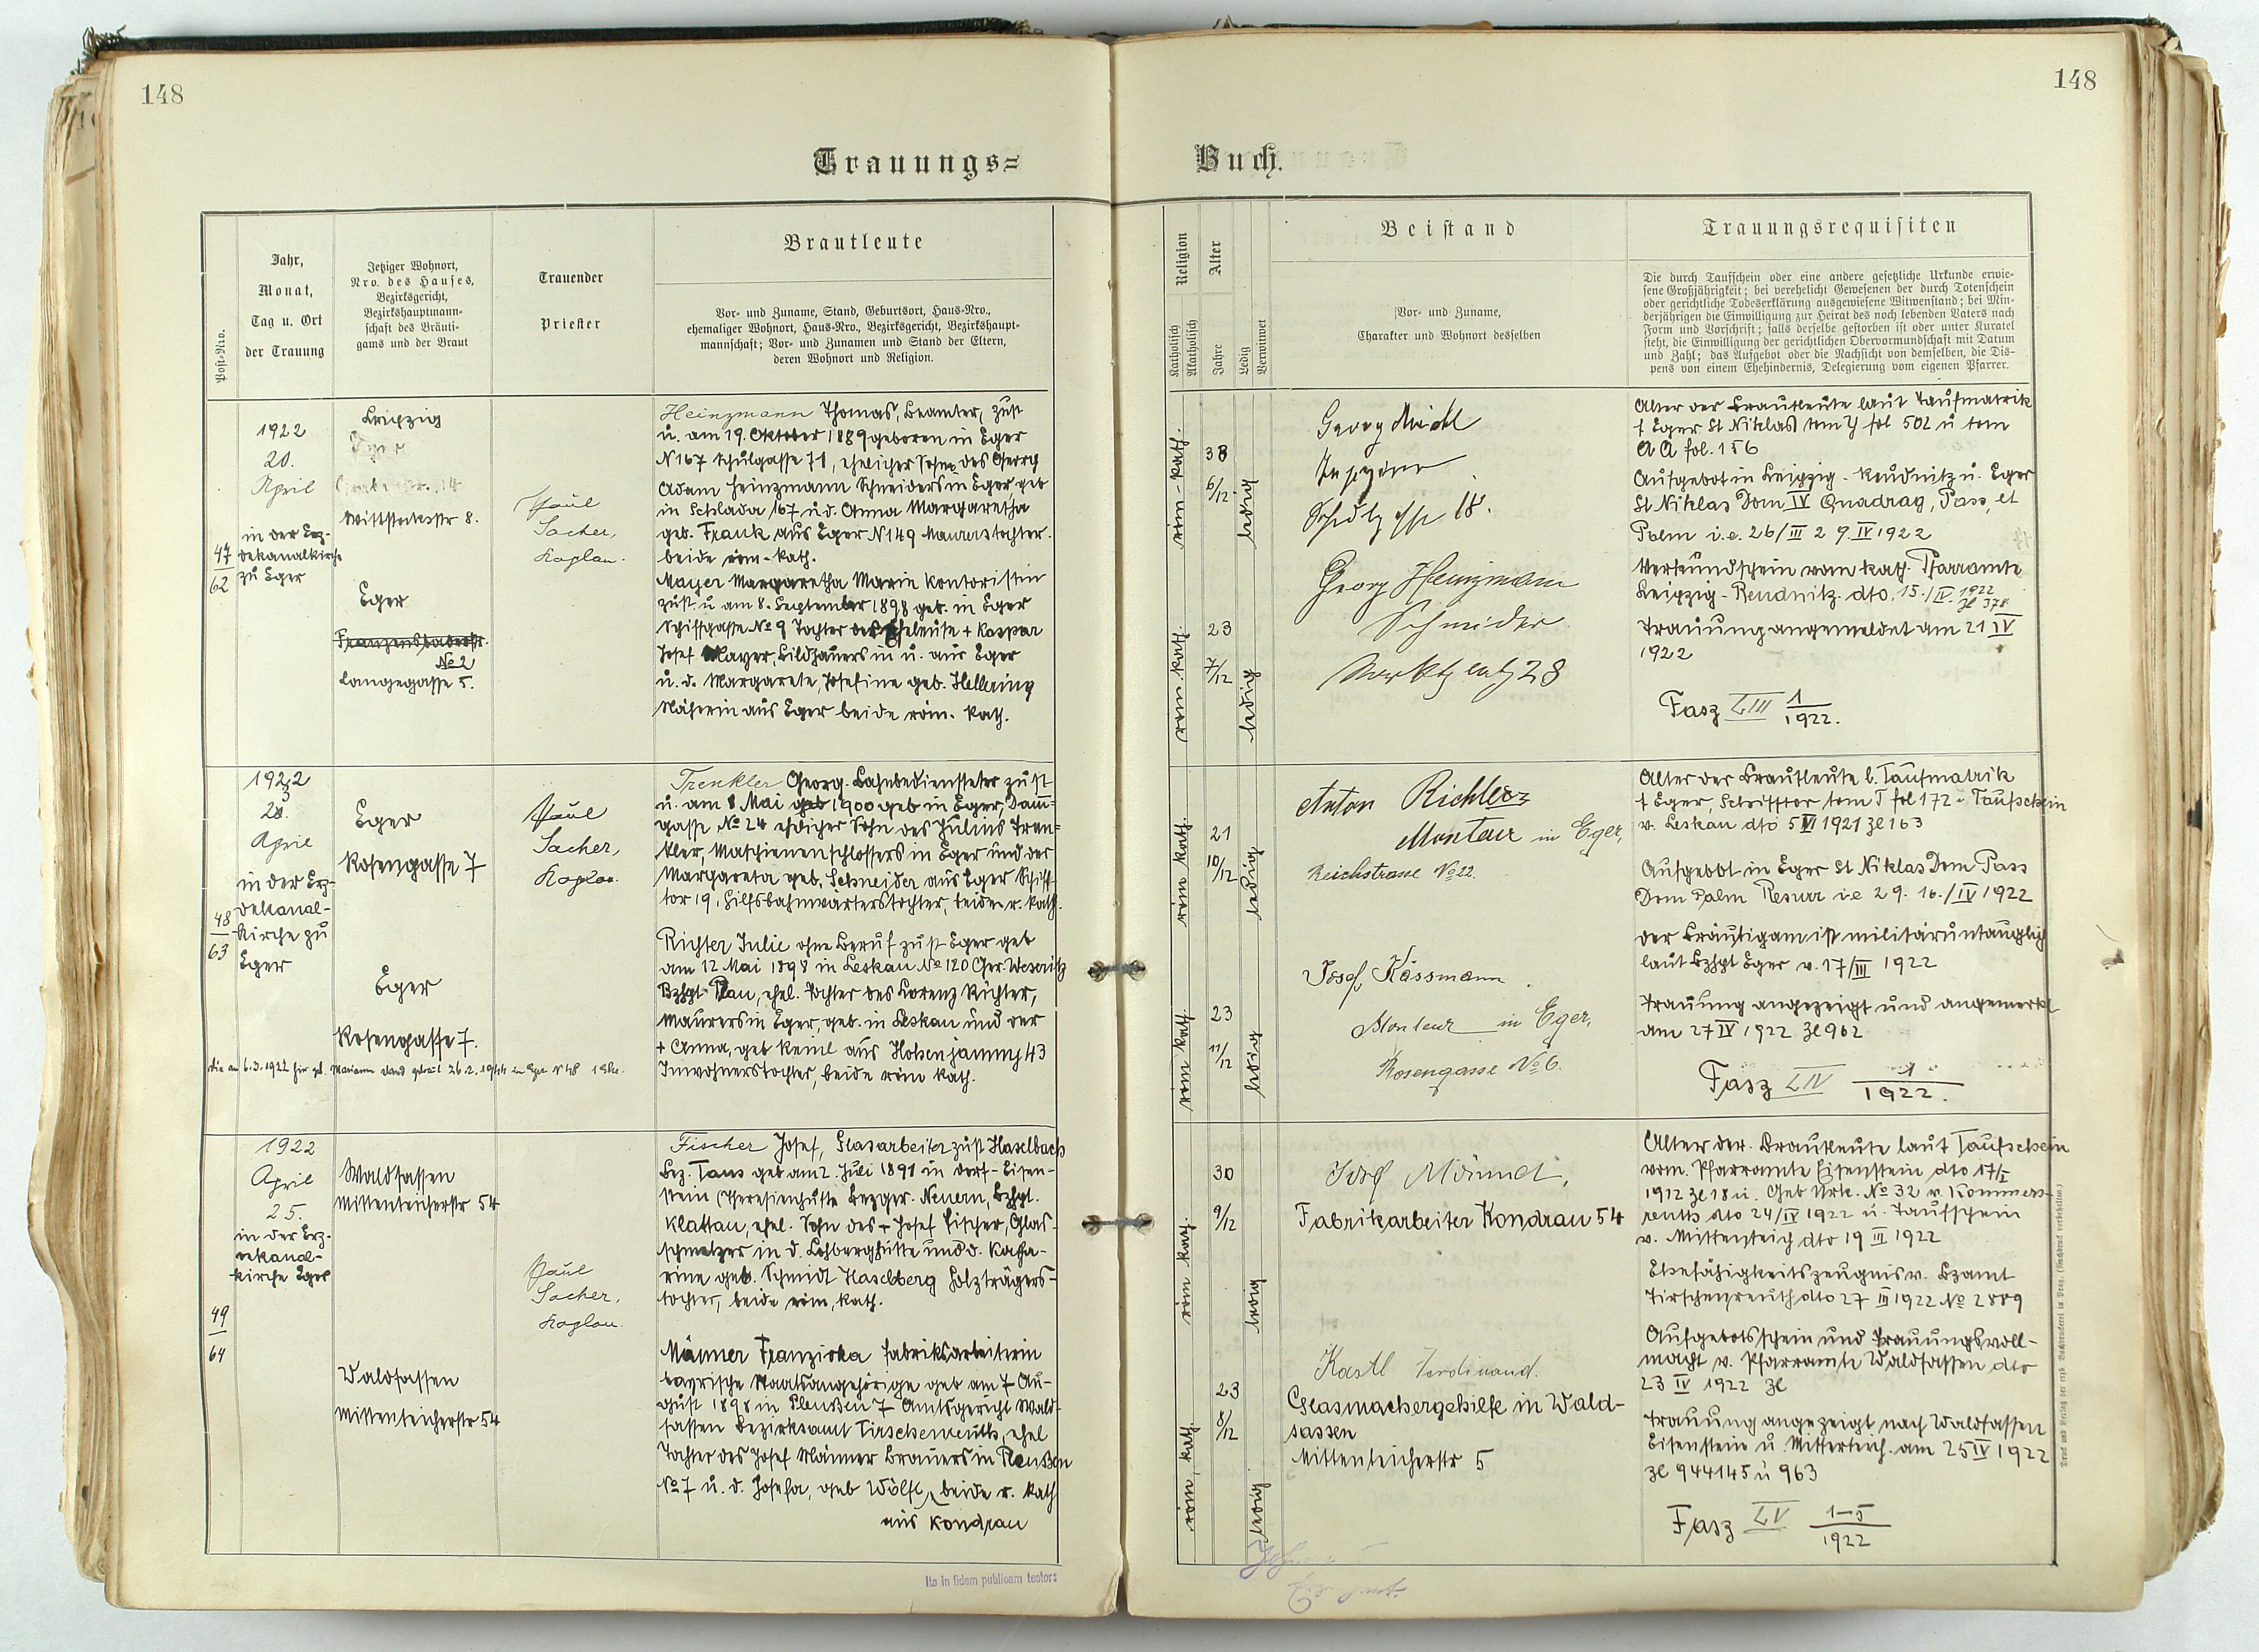 148
148
Trauungs=
Buch.
Post-Nro.
Jahr,
Monat,
Tag u. Ort
der Trauung
Jetziger Wohnort,
Nro. des Hauses,
Bezirksgericht,
Bezirkshauptmann-
schaft des Bräuti-
gams und der Braut
Trauender
Priester
Brautleute
Vor- und Zuname, Stand, Geburtsort, Haus-Nro.,
ehemaliger Wohnort, Haus-Nro., Bezirksgericht, Bezirkshaupt-
mannschaft; Vor- und Zunamen und Stand der Eltern,
deren Wohnort und Religion.
Religion
Katholisch
Akatholisch
Alter
Jahre
Ledig
Verwitwet
Beistand
Vor- und Zuname,
Charakter und Wohnort desselben
Trauungsrequisiten
Die durch Taufschein oder eine andere gesetzliche Urkunde erwie-
sene Großjährigkeit; bei verehelicht Gewesenen der durch Totenschein
oder gerichtliche Todeserklärung ausgewiesene Witwenstand; bei Min-
derjährigen die Einwilligung zur Heirat des noch lebenden Vaters nach
Form und Vorschrift; falls derselbe gestorben ist oder unter Kuratel
steht, die Einwilligung der gerichtlichen Obervormundschaft mit Datum
und Zahl; das Aufgebot oder die Nachsicht von demselben, die Dis-
pens von einem Ehehindernis, Delegierung vom eigenen Pfarrer.
47
62
1922
20.
April
in der Erz-
dekanalkirche
zu Eger
Leipzig
Wittstockstr 8.
Eger
Franzensbaderstr.
No 2
Langegasse 5.
Paul
Sacher,
Kaplan.
Heinzmann Thomas, Beamter, zust
u. am 19. Oktober 1889 geboren in Eger
N 167 Schulgasse 71, ehelicher Sohn des Georg
Adam Heinzmann Schneiders in Eger, geb
in Schlada 167 u. d. Anna Margaretha
geb. Frank aus Eger N 149 Maurerstochter.
beide röm. kath.
Mayer Margaretha Marie Kontoristin
zust. u am 8. September 1898 geb. in Eger
Schiffgasse No 9 Tochter der Eheleute + Kaspar
Josef Mayer, Bildhauers in u. aus Eger
u. d. Margarete, Josefine geb. Hellering
Näherin aus Eger beide röm. kath.
röm-kath.
38
6/12
ledig
röm kath.
23
7/12
ledig
Georg
Schulg 18.
Georg Heinzmann
Schneider
Marktplatz 28
Alter der Brautleute laut Taufmatrik
f Eger St Niklas tom Y fol 502 u tom
A A fol. 156
Aufgebot in Leipzig-Reudnitz u. Eger
St Niklas Dom IV Quadrag, Pass, et
Palm i. e. 26/III 2 9. IV 1922
Verkündschein vom kath. Pfarramte
Leipzig-Reudnitz dto. 15./IV. 1922
Zl 378
Trauung angemeldet am 21 IV
1922
Fasz LIII 1/1922.
48
63
1922
23.
April
in der Erz-
dekanal-
kirche zu
Eger
Eger
Rosengasse 7
Eger
Rosengasse 7.
Paul
Sacher,
Kaplan.
Trenkler Georg Bahnbediensteter zust
u. am 8 Mai geb 1900 geb in Eger, Damm-
gasse No 24 ehelicher Sohn des Julius Tren-
kler, Maschienenschlossers in Eger und der
Margareta geb. Schneider aus Eger Schiff-
tor 19, Hilfsbahnwärterstochter, beide r. kath.
Richter Julie ohne Beruf zust Eger geb
am 12 Mai 1898 in Leskau No 120 Ger. Weseritz
Bzhpt Plan, ehel. Tochter des Lorenz Richter,
Maurers in Eger, geb. in Leskau und der
+ Anna, geb Keinl aus Hohenjamny 43
Inwohnerstochter, beide röm kath.
röm kath.
21
10/12
ledig
röm kath.
23
11/12
ledig
Anton Richter
Monteur in Eger,
Reichstrasse No 22.
Josef Kässmann
Monteur in Eger,
Rosengasse No 6.
Alter der Brautleute l. Taufmatrik
f Eger, Schifftor tom T fol 172 u Taufschein
v. Leskau dto 5 VI 1921 Zl 163
Aufgebot in Eger St Niklas Dom Pass
Dom Palm Resurr i. e 2 9. 16./IV 1922
Der Bräutigam ist militäruntauglich
laut Bzhpt Eger v. 17/III 1922
Trauung angezeigt und angemerkt
am 27 IV 1922 Zl 962
Fasz LIV 1/1922.
49
64
1922
April
25.
in der Erz-
dekanal-
kirche Eger
Waldsassen
Mitterteicherstr 54
Waldsassen
Mitterteicherstr 54
Paul
Sacher,
Kaplan.
Fischer Josef, Glasarbeiter zust Haselbach
Bez. Taus geb am 2. Juli 1891 in Dorf-Eisen-
stein (Theresienhütte Bezger. Neuern, Bzhpt.
Klattau, ehel. Sohn des + Josef Fischer, Glas-
schmelzer in d. Lohberghütte und d. Katha-
rine geb. Schmidt Haselberg Holzträgers-
tochter, beide röm. kath.
Männer Franziska Fabriksarbeiterin
bayrische Staatsangehörige geb am 7 Au-
gust 1898 in Pleußen 7 Amtsgericht Wald-
sassen Bezirksamt Tirschenreuth, ehel
Tochter des Josef Männer Brauers in Pleußen
No 7 u. d. Josefa, geb Wölfl, beide r. kath
aus Kondrau
röm kath.
30
9/12
ledig
röm. kath.
23
8/12
ledig
Josef Männer,
Fabrikarbeiter Kondrau 54
Kastl Ferdinand.
Glasmachergehilfe in Wald-
sassen
Mitterteicherstr 5
Alter der Brautleute laut Taufschein
vom Pfarramte Eisenstein dto 17/I
1912 Zl 18 u. Geb Urk. No 32 v. Kommers-
reuth dto 24/IV 1922 u. Taufschein
v. Mitterteich dto 19 III 1922
Ehefähigkeitszeugnis v. Bzamt
Tirschenreuth dto 27 III 1922 No 2889
Aufgebotsschein und Trauungsvoll-
macht v. Pfarramte Waldsassen dto
23 IV 1922 Zl
Trauung angezeigt nach Waldsassen
Eisenstein u. Mitterteich am 25 IV 1922
Zl 944 145 u 963
Fasz LV 1-5/1922
Ita in fidem publicam testor: